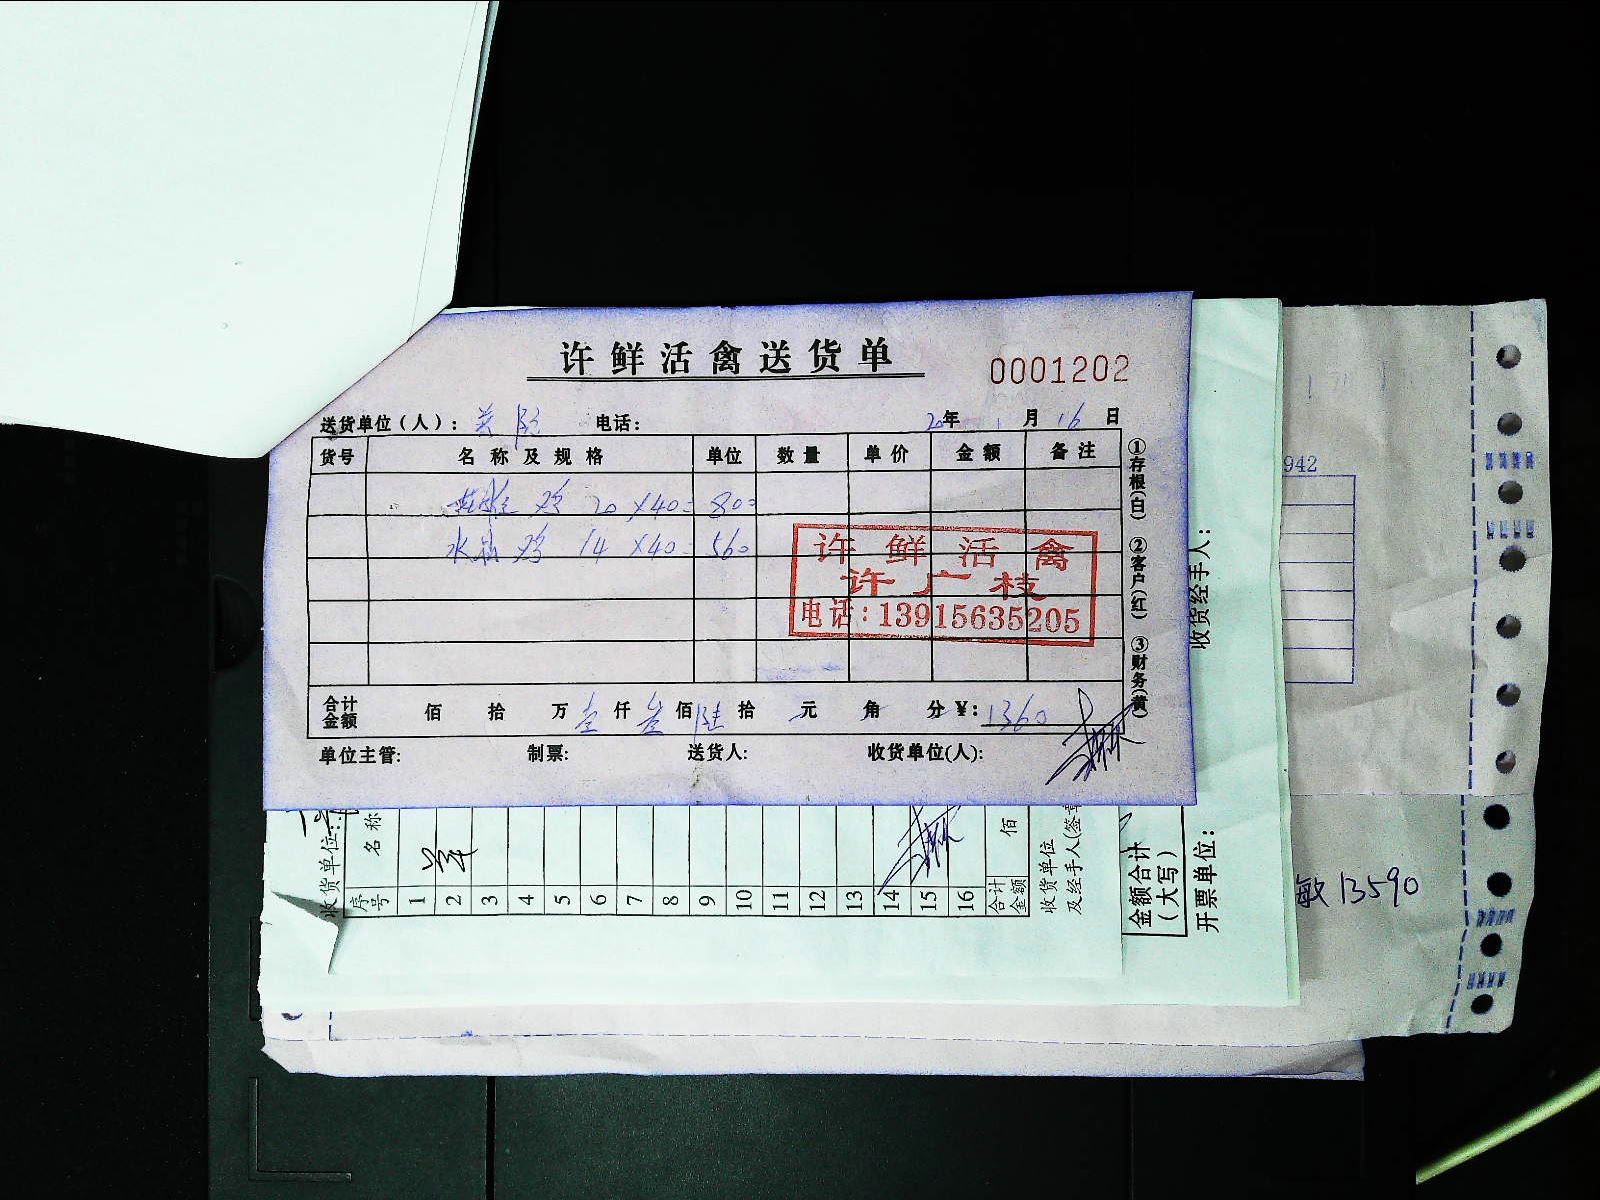 许鲜活禽送货单
0001202
送货单位(人): 电话: 20年 1月 16日
货号 名称及规格 单位 数量 单价 金额 备注
鸡 20 X40= 800
水 鸡 14 X40= 560
许鲜活禽
许广枝
电话:13915635205
合计金额 佰 拾 万 壹 仟 叁 佰 陆 拾 元 角 分 ¥: 1360
单位主管: 制票: 送货人: 收货单位(人):
①存根(白) ②客户(红) ③财务(黄)
收货单位:
序号 名称
1
2
3
4
5
6
7
8
9
10
11
12
13
14
15
16
合计金额 佰
收货单位及经手人(签章
金额合计(大写)
开票单位:
收货经手人:
942
敏 13590